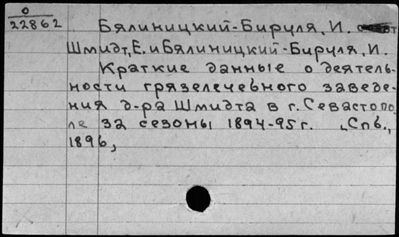 О
22862
Бялиницкий-Бируля, И.
Шмидт, Е. и Бялиницкий-Бируля, И.
Краткие данные о деятель-
ности грязелечебного заведе-
ния д-ра Шмидта в г. Севастопо-
ле за сезоны 1894-95 г. Спб.,
1896,